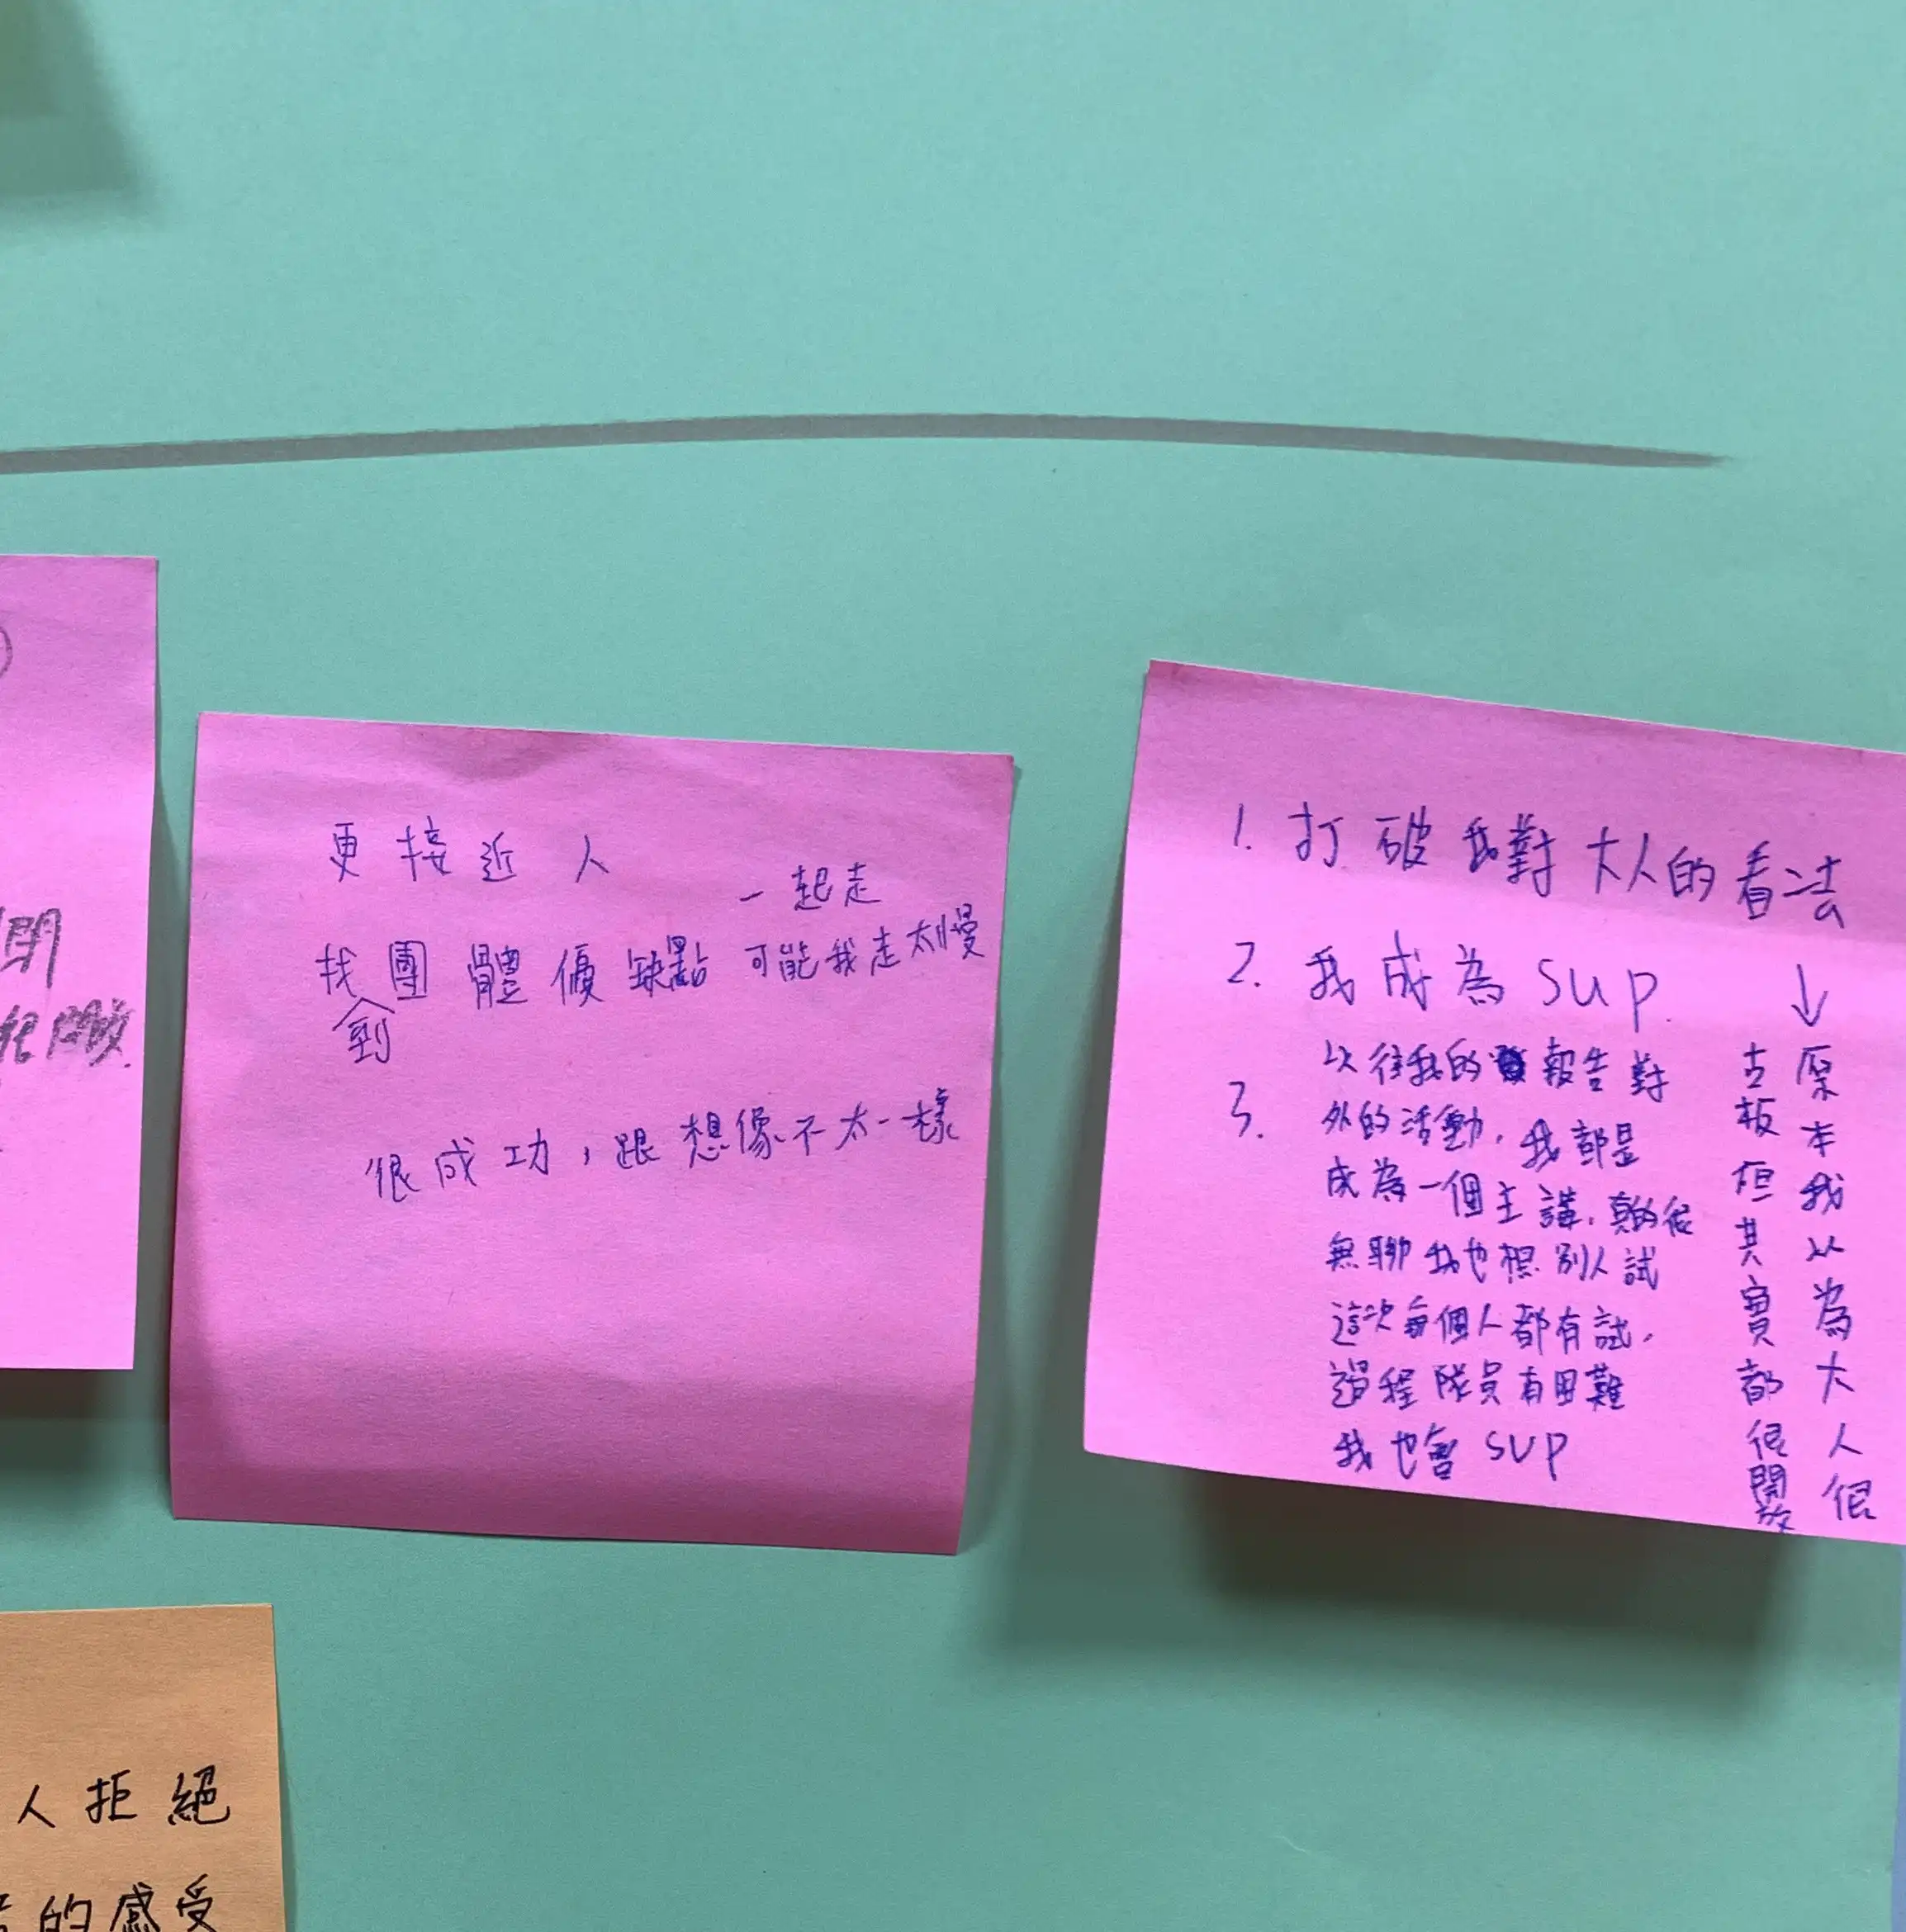 閉
人拒絕
的感受
更接近人
一起走
找到團體優缺點 可能我走太慢
很成功，跟想像不太一樣
1. 打破我對大人的看法
↓
原本我以為大人很
古板但其實都很開放
2. 我成為 sup.
3. 以往我的報告對
外的活動，我都是
成為一個主講，真的很
無聊我也想別人試
這次每個人都有試，
過程隊員有困難
我也會 sup